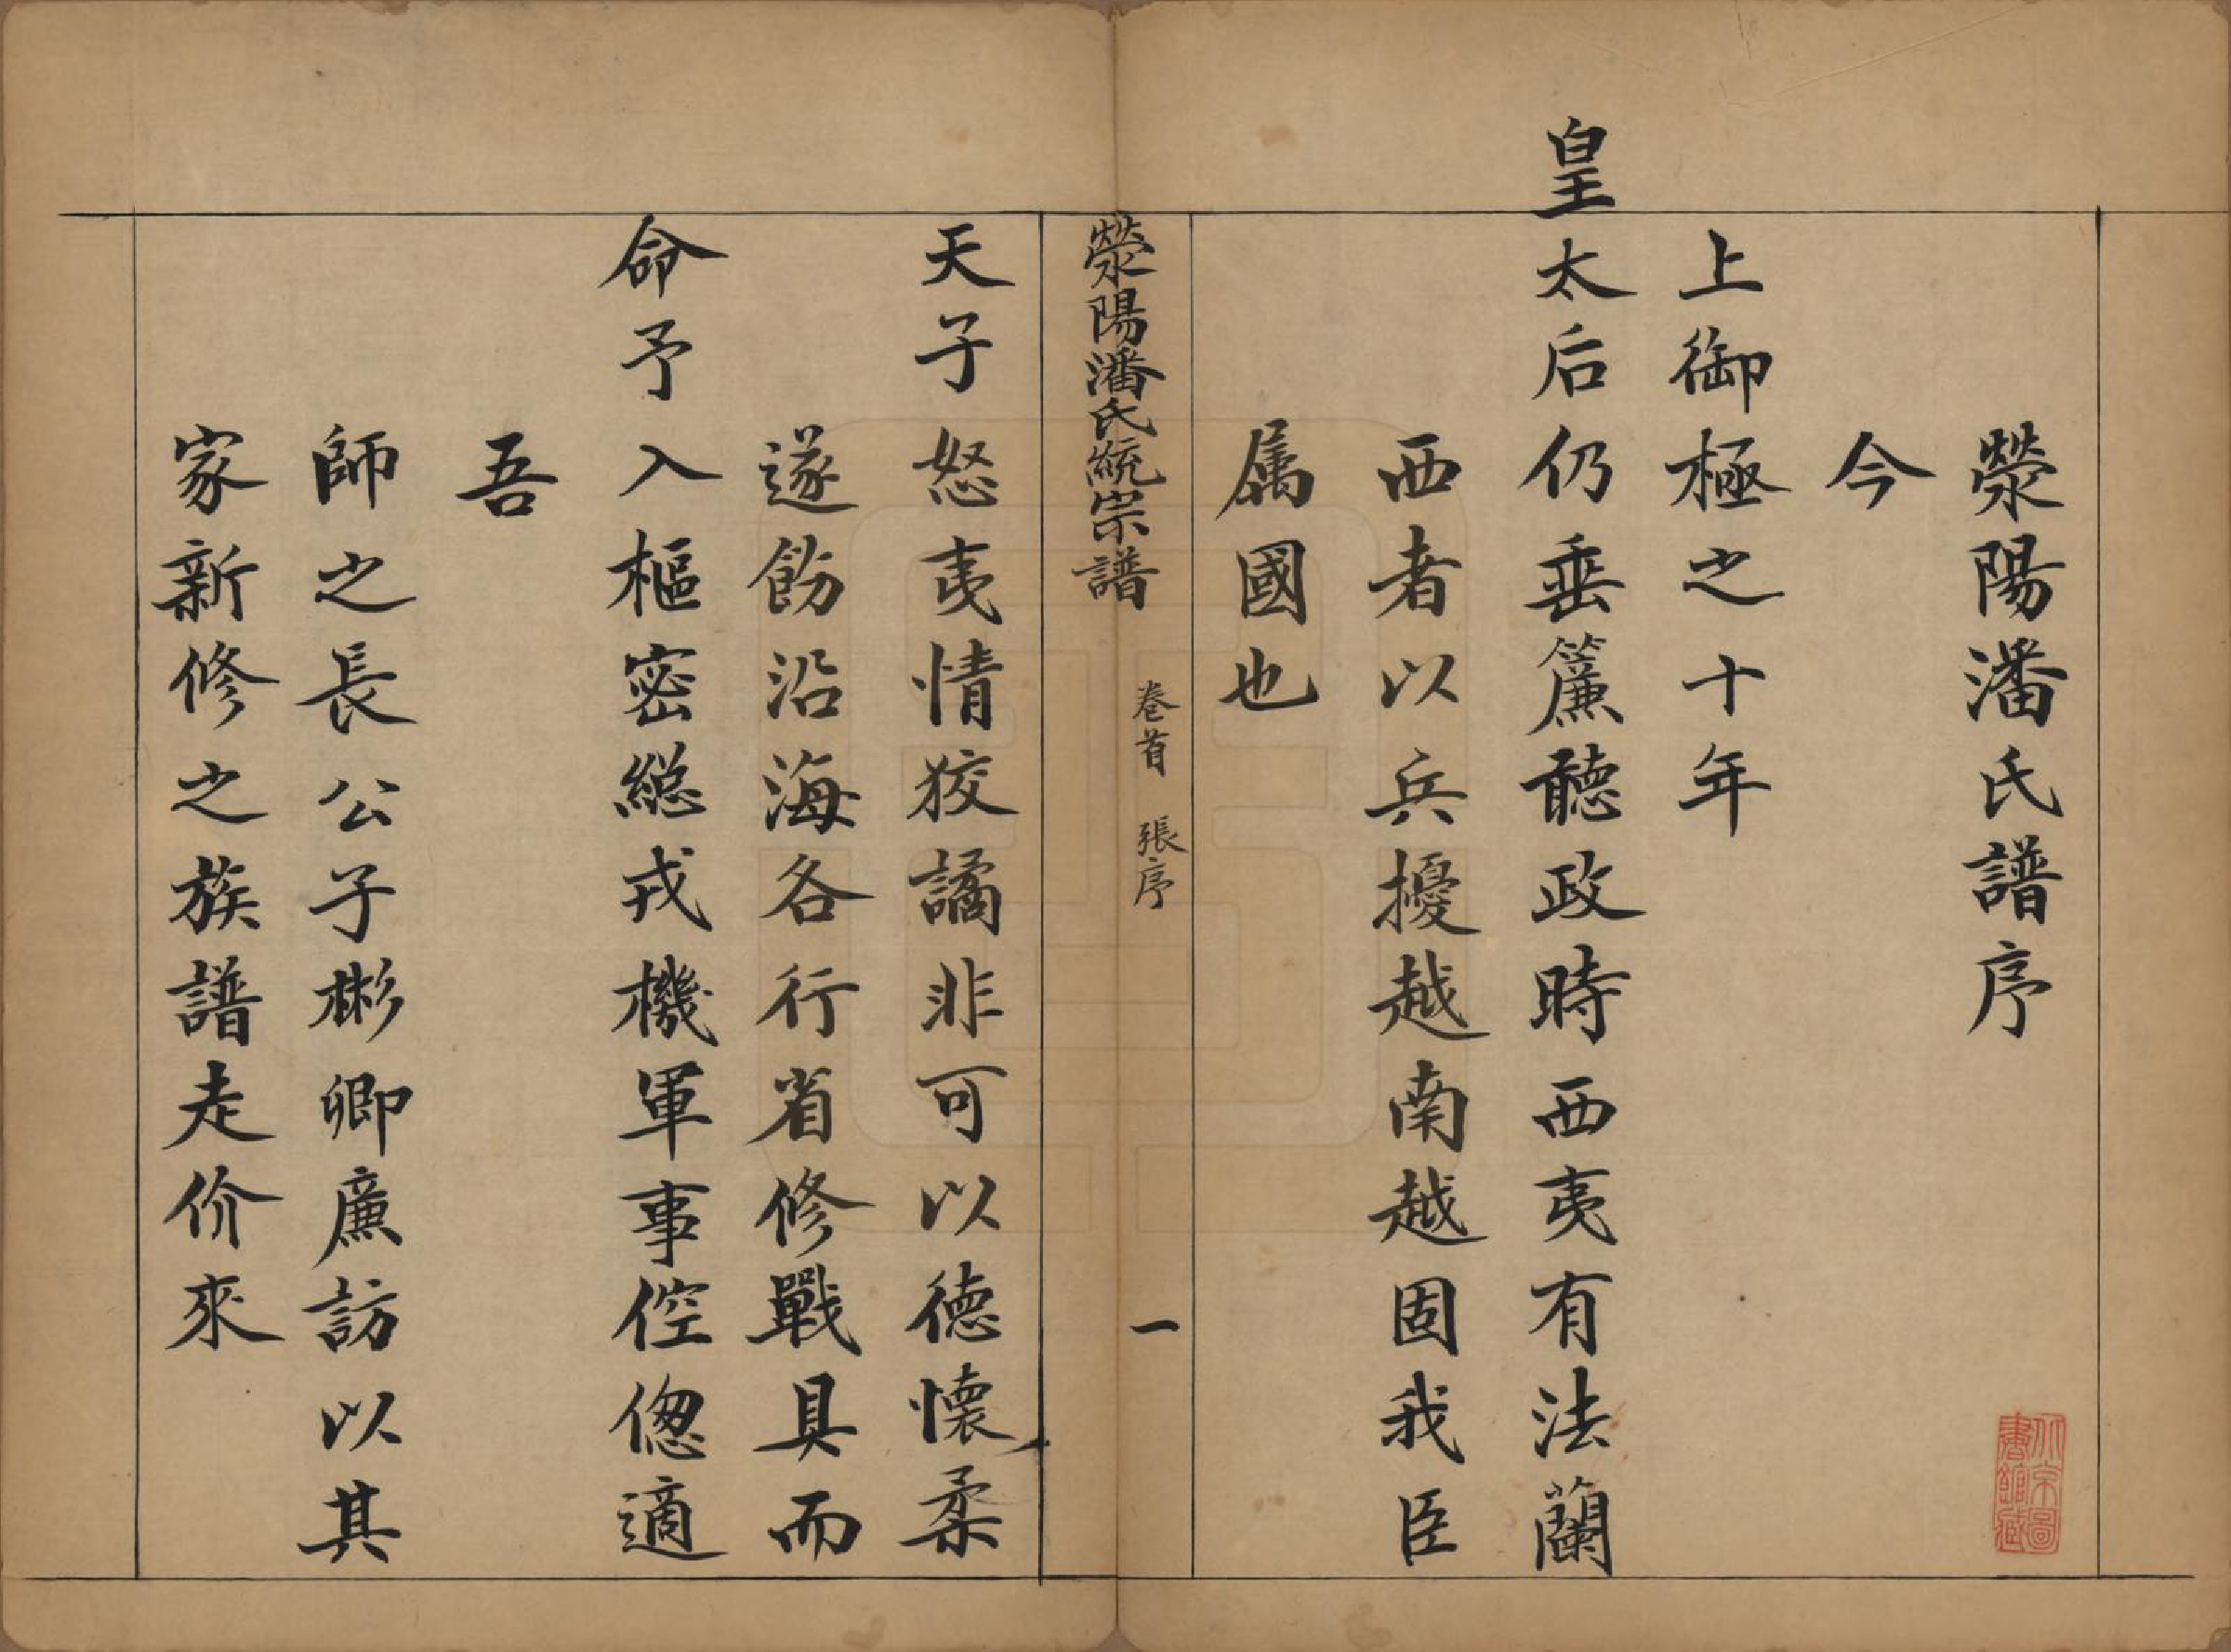 滎陽潘氏譜序
今
上御極之十年
皇太后仍垂簾聽政時西夷有法蘭
西者以兵擾越南越固我臣
属國也
滎陽潘氏統宗譜
卷首 張序
一
天子怒夷情狡譎非可以德懷柔
遂飭沿海各行省修戰具而
命予入樞密總戎機軍事倥傯適
吾
師之長公子彬卿廉訪以其
家新修之族譜走价來
北京圖
書館藏